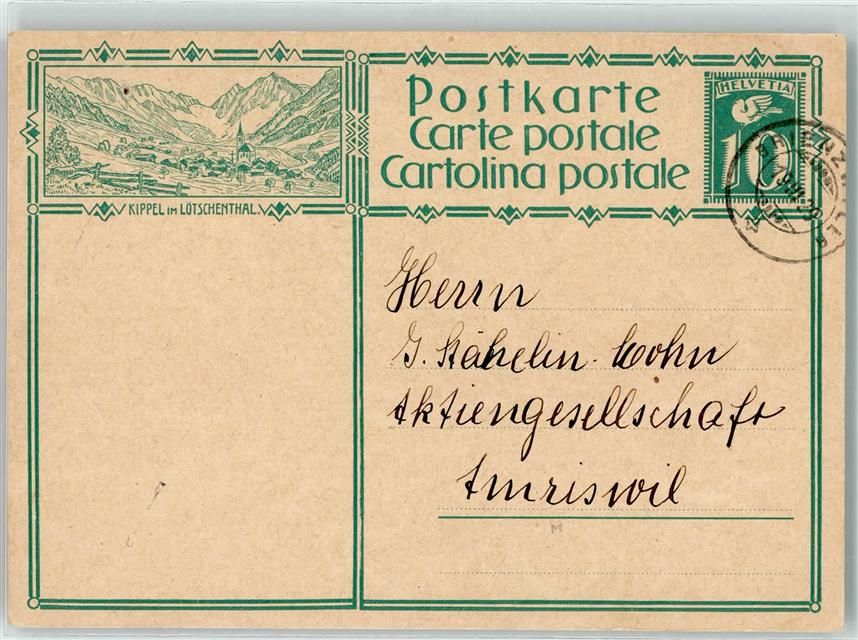 KIPPEL IM LÖTSCHENTHAL.
Postkarte
Carte postale
Cartolina postale
HELVETIA
10
Herrn
J. Stähelin-Cohn
Aktiengesellschaft
Amriswil
M